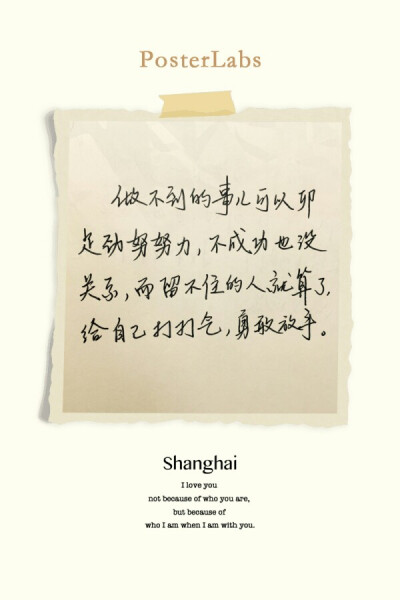 PosterLabs
做不到的事儿可以卯
足劲努努力,不成功也没
关系,而留不住的人就算了,
给自己打打气,勇敢放手。
Shanghai
I love you
not because of who you are,
but because of
who I am when I am with you.